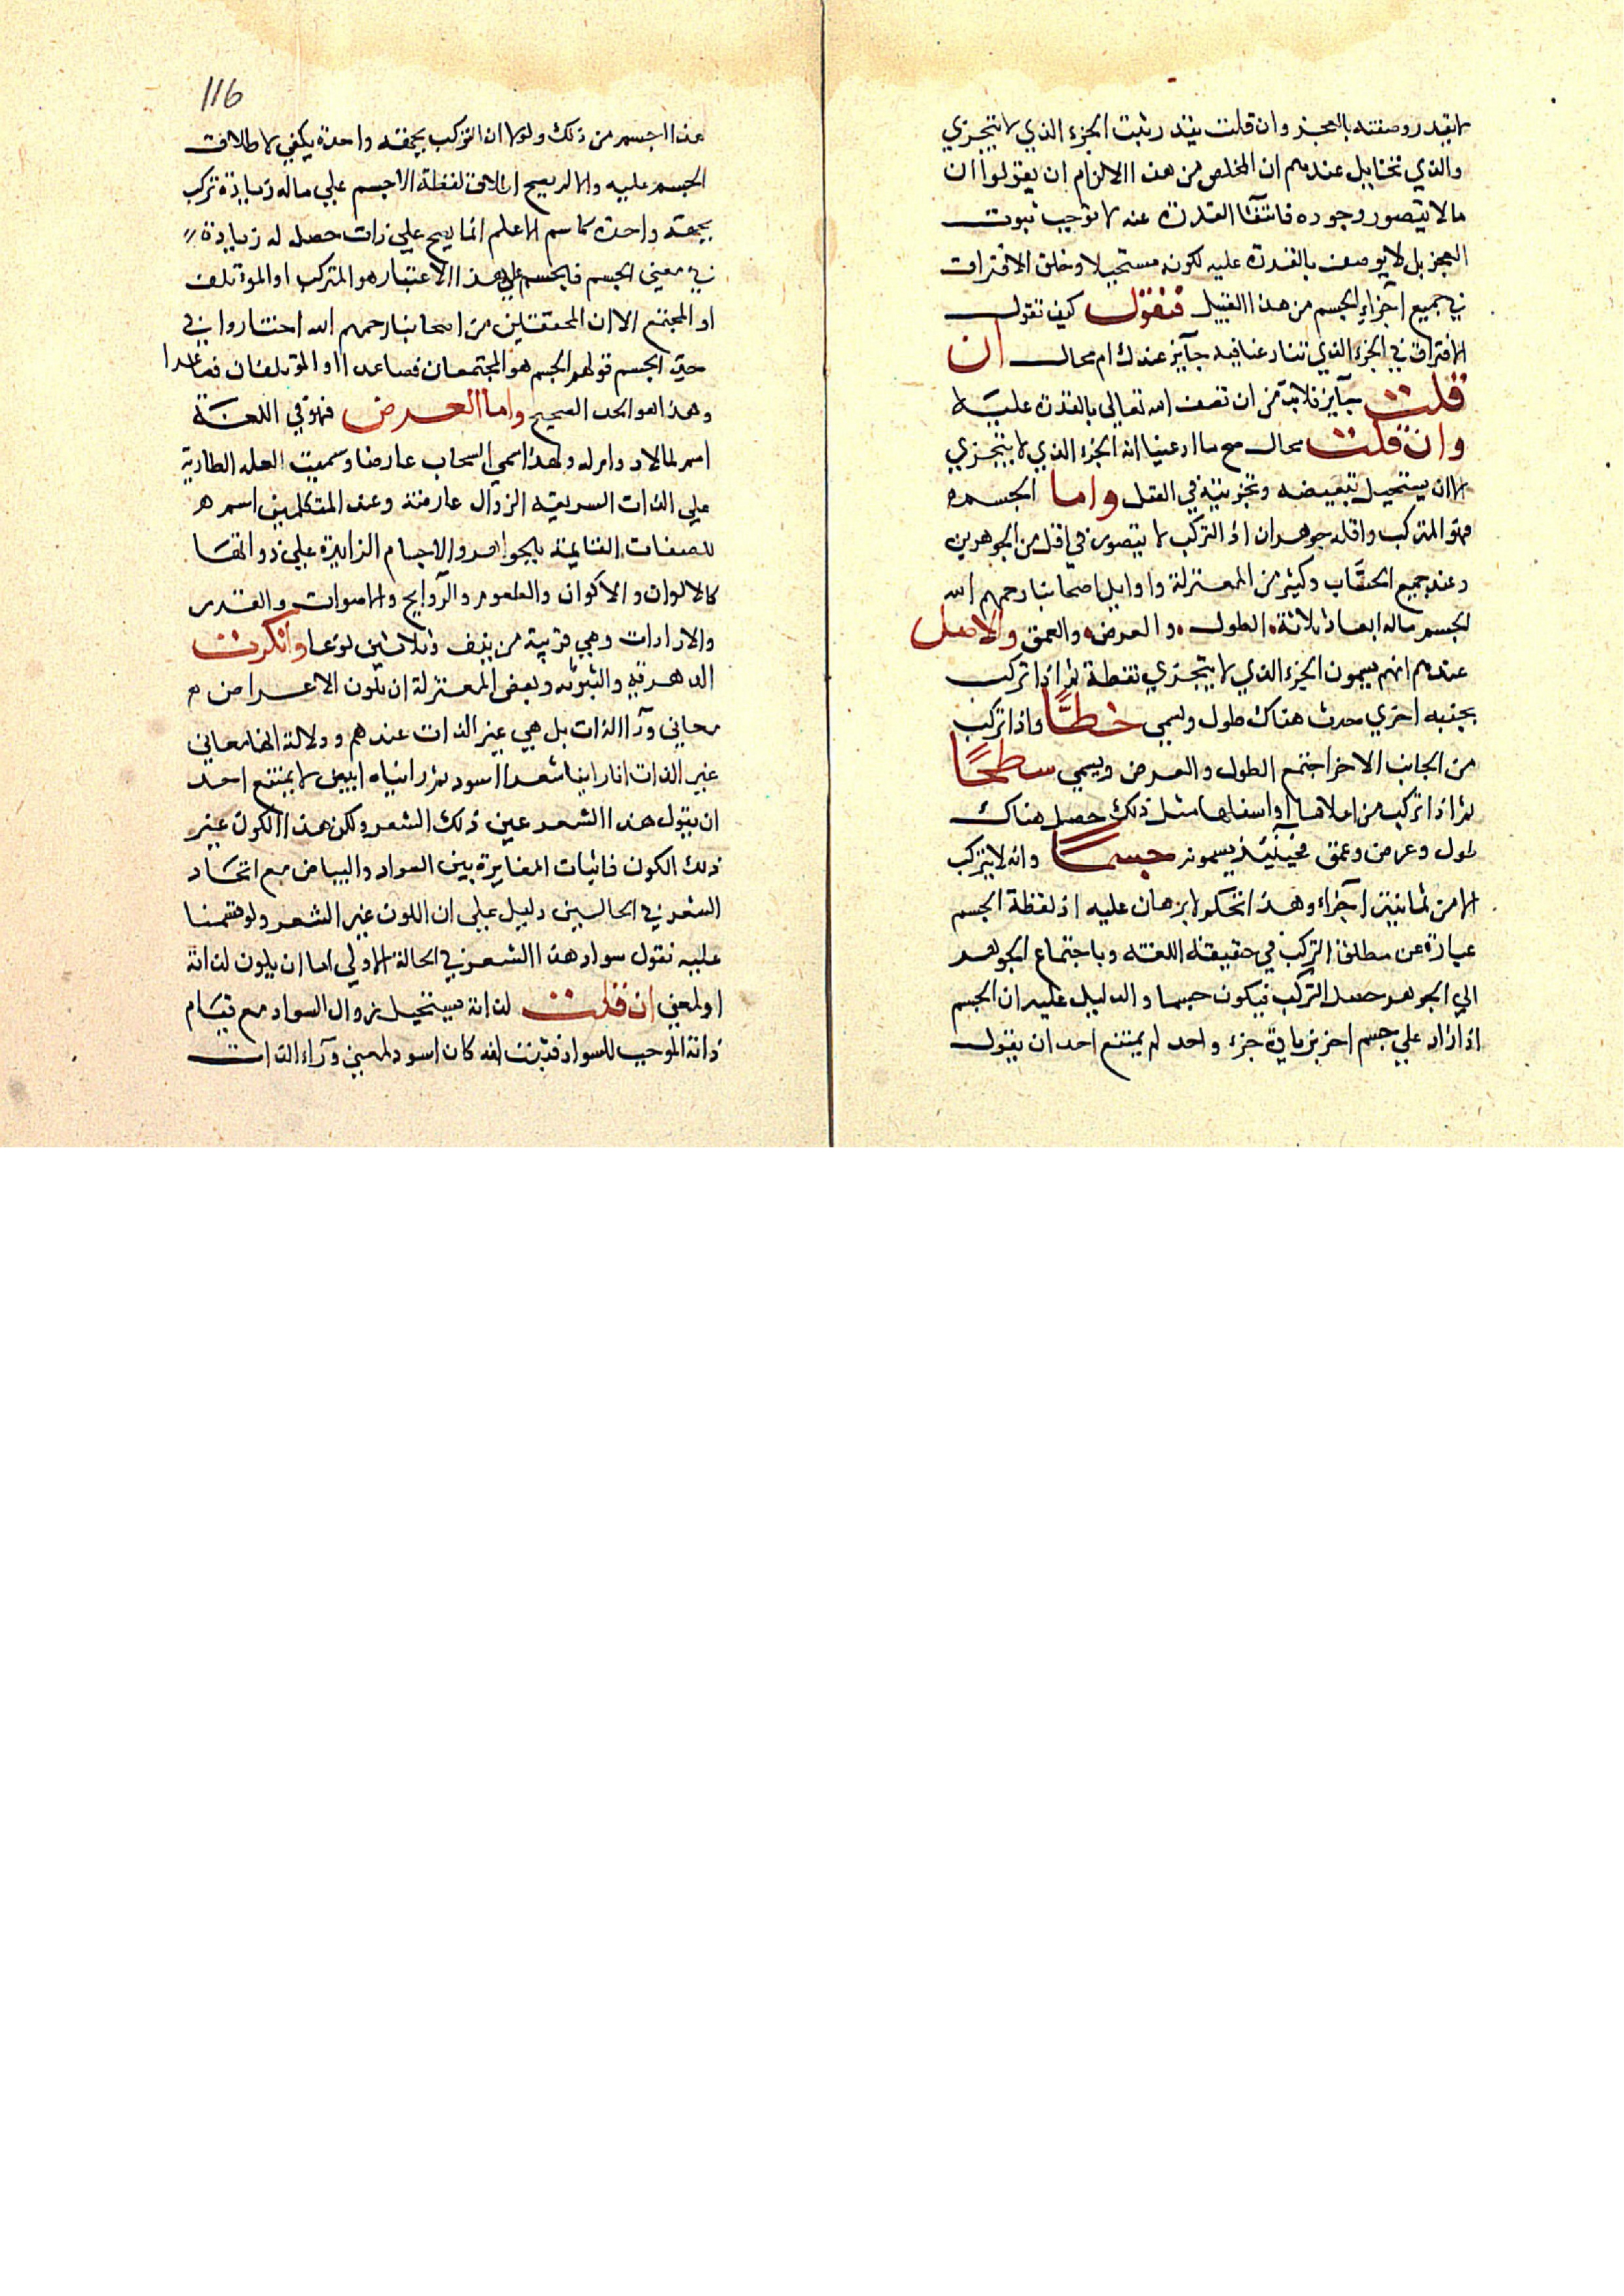 لا يقدر وصفته بالعجز وان قلت يقدر ثبت الجزء الذي لا يتجزي
والذي تخايل عندهم ان المخلص من هذا الالزام ان يقولوا ان
مالا يتصور وجوده فانتفآ القدرة عنه لا توجب ثبوت
العجز بل لا يوصف بالقدرة عليه لكونه مستحيلا وخلق الافتراق
في جميع اجزاء الجسم من هذا القبيل فنقول كيف تقول
الافتراق في الجزء الذي تنازعنا فيه جآيز عندك ام محال ان
قلت جآيز فلا بد من ان تصف الله تعالي بالقدرة عليه
وان قلت محال صح ما ادعينا انه الجزء الذي لا يتجزي
لانه يستحيل تبعيضه وتجزيته في العقل واما الجسم
فهو المتركب واقله جوهران اذ التركب لا يتصور في اقل من الجوهرين
وعند جميع الحسّاب وكثير من المعتزلة واوايل اصحابنا رحمهم الله
الجسم ماله ابعاد ثلاثة الطول والعرض والعمق والاصل
عندهم انهم يسمون الجزء الذي لا يتجزي نقطة ثم اذا تركب
بجنبه اخري حدث هناك طول ويسمي خطًّا واذا تركب
من الجانب الاخر اجتمع الطول والعرض ويسمي سطحًا
ثم اذا تركب من اعلاها او اسفلها مثل ذلك حصل هناك
طول وعرض وعمق فحينئذ يسمونه جسمًا وانه لا يتركب
الا من ثمانية اجزاء وهذا تحكم لا برهان عليه اذ لفظة الجسم
عبارة عن مطلق التركب في حقيقة اللغة وباجتماع الجوهر
الي الجوهر حصل التركب فيكون جسما والدليل عليه ان الجسم
اذا زاد علي جسم اخر بزيادة جزء واحد لم يمتنع احد ان يقول
116
هذا اجسم من ذلك ولولا ان التركب بجهة واحدة يكفي لاطلاق
الجسم عليه والا لم يصح اطلاق لفظة الاجسم علي ماله زيادة تركب
بجهة واحدة كاسم الاعلم انما يصح علي ذات حصل له زيادة
في معني الجسم فالجسم علي هذا الاعتبار هو المتركب او الموتلف
او المجتمع الا ان المحققين من اصحابنا رحمهم الله اختاروا في
حدّ الجسم قولهم الجسم هو المجتمعان فصاعدا او الموتلفان فصاعدا
وهذا هو الحد الصحيح واما العرض فهو في اللغة
اسم لما لا دوام له ولهذا سمي السحاب عارضا وسميت العلة الطارية
علي الذات السريعة الزوال عارضة وعند المتكلمين اسم
للصفات القايمة بالجواهر والاجسام الزايدة علي ذواتها
كالالوان والاكوان والطعوم والروايح والاصوات والقدر
والارادات وهي قريبة من نيف وثلاثين نوعا وانكرت
الدهرية والثنوية وبعض المعتزلة ان تكون الاعراض
معاني ورآ الذات بل هي عين الذات عندهم ودلالة انها معاني
غير الذات انا راينا شعرا اسود ثم رايناه ابيض لا يمتنع احد
ان يقول هذا الشعر عين ذلك الشعر ولكن هذا اللون غير
ذلك اللون فاثبات المغايرة بين السواد والبياض مع اتحاد
الشعر في الحالين دليل علي ان اللون غير الشعر ولو قسمنا
عليه نقول سواد هذا الشعر في الحالة الاولي اما ان يكون لذاته
او لمعني ان قلت لذاته يستحيل زوال السواد مع قيام
ذاته الموجب للسواد فثبت انه كان اسود لمعني ورآء الذات